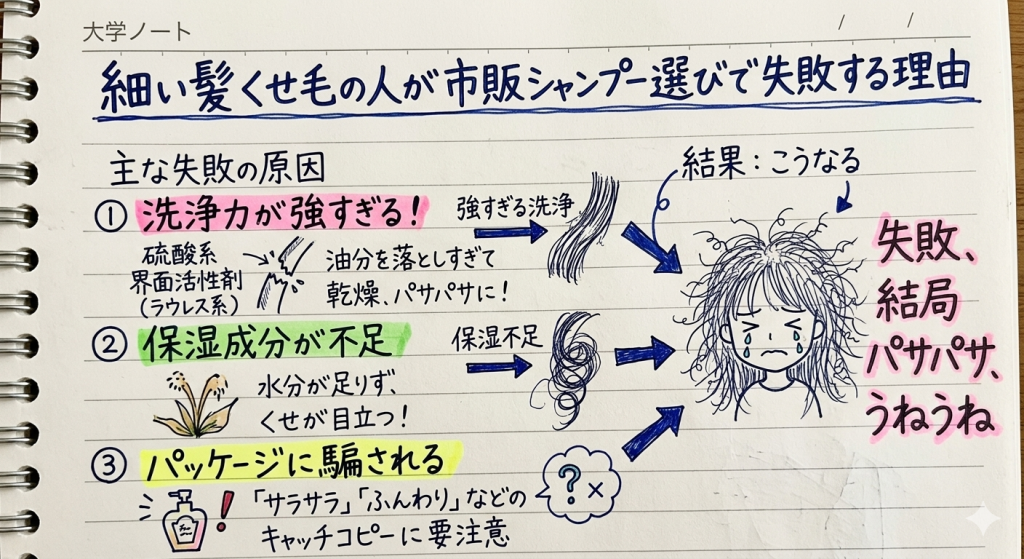 大学ノート / /
細い髪くせ毛の人が市販シャンプー選びで失敗する理由
主な失敗の原因
① 洗浄力が強すぎる！
硫酸系
界面活性剤
（ラウレス系）
油分を落としすぎて
乾燥、パサパサに！
強すぎる洗浄
② 保湿成分が不足
水分が足りず、
くせが目立つ！
保湿不足
③ パッケージに騙される
！
「サラサラ」「ふんわり」などの
キャッチコピーに要注意
？×
結果：こうなる
失敗、
結局
パサパサ、
うねうね